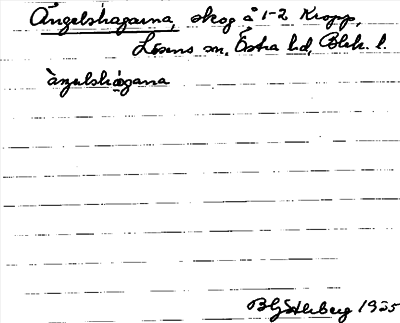 Ängelshagarna, skog å 1-2 Kropp,
Lösens sn, Östra hd, Blek. l.
àŋəlshágana
1935